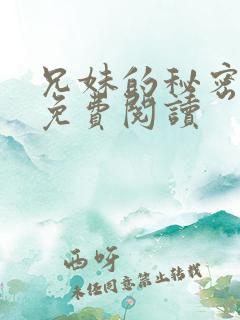 兄妹的秘密
免費閱讀
西呀
未经同意禁止转载